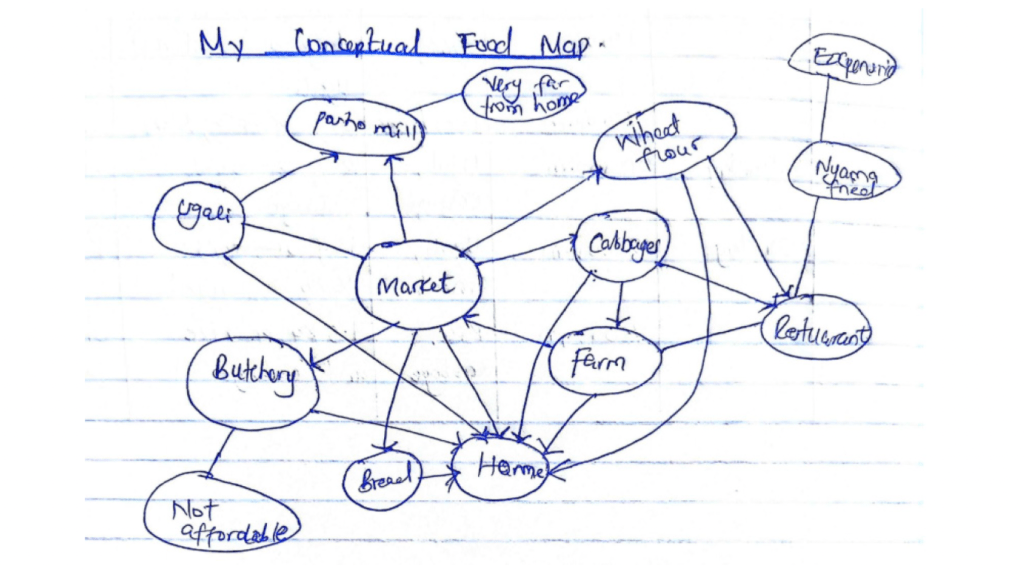 My Conceptual Food Map.
Very far
from home
Posho mill
Wheat
flour
Nyama
Ugali
Cabbages
Market
Restuarant
Farm
Butchery
Home
Bread
Not
affordable